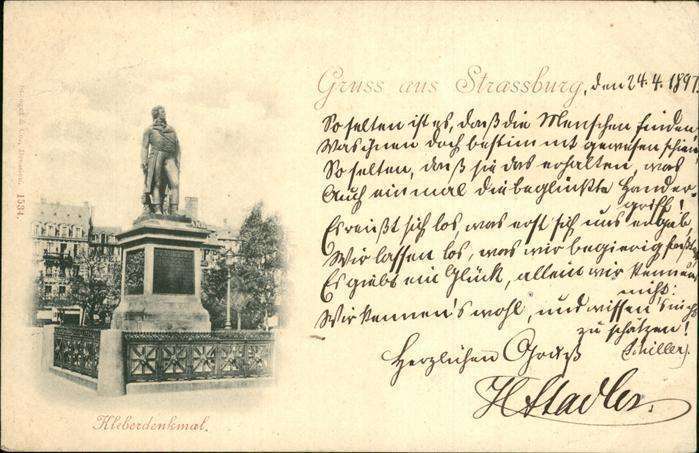 Gruss aus Strassburg, den 24.4.1897.
So selten ist es, daß die Menschen finden
Was ihnen doch bestimmt gewesen schien
So selten, daß sie das erhalten, was
Auch einmal die beglückte Hand er-
griff!
Es reißt sich los, was erst sich uns ergab
Wir lassen los, was wir begierig faßten
Es giebt ein Glück, allein wir kennen's
nicht:
Wir kennen's wohl, und wissen's nicht
zu schätzen!
(Schiller).
Herzlichen Gruß
HStadler
Kleberdenkmal.
Stengel & Co., Dresden. 1534.